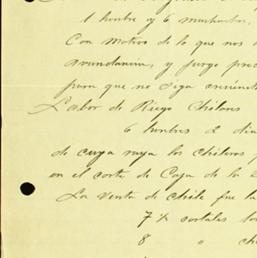 1 hombre y 6 muchachos,
Con motivo de lo que nos d
abundancia, y juzgo prec
para que no siga
Labor de Riego Chilares
6 hombres 2 dia
de cuya raya los chileros
en el corte de Caja de la
La venta de chile fue la
7 ½ costales
8 " ch